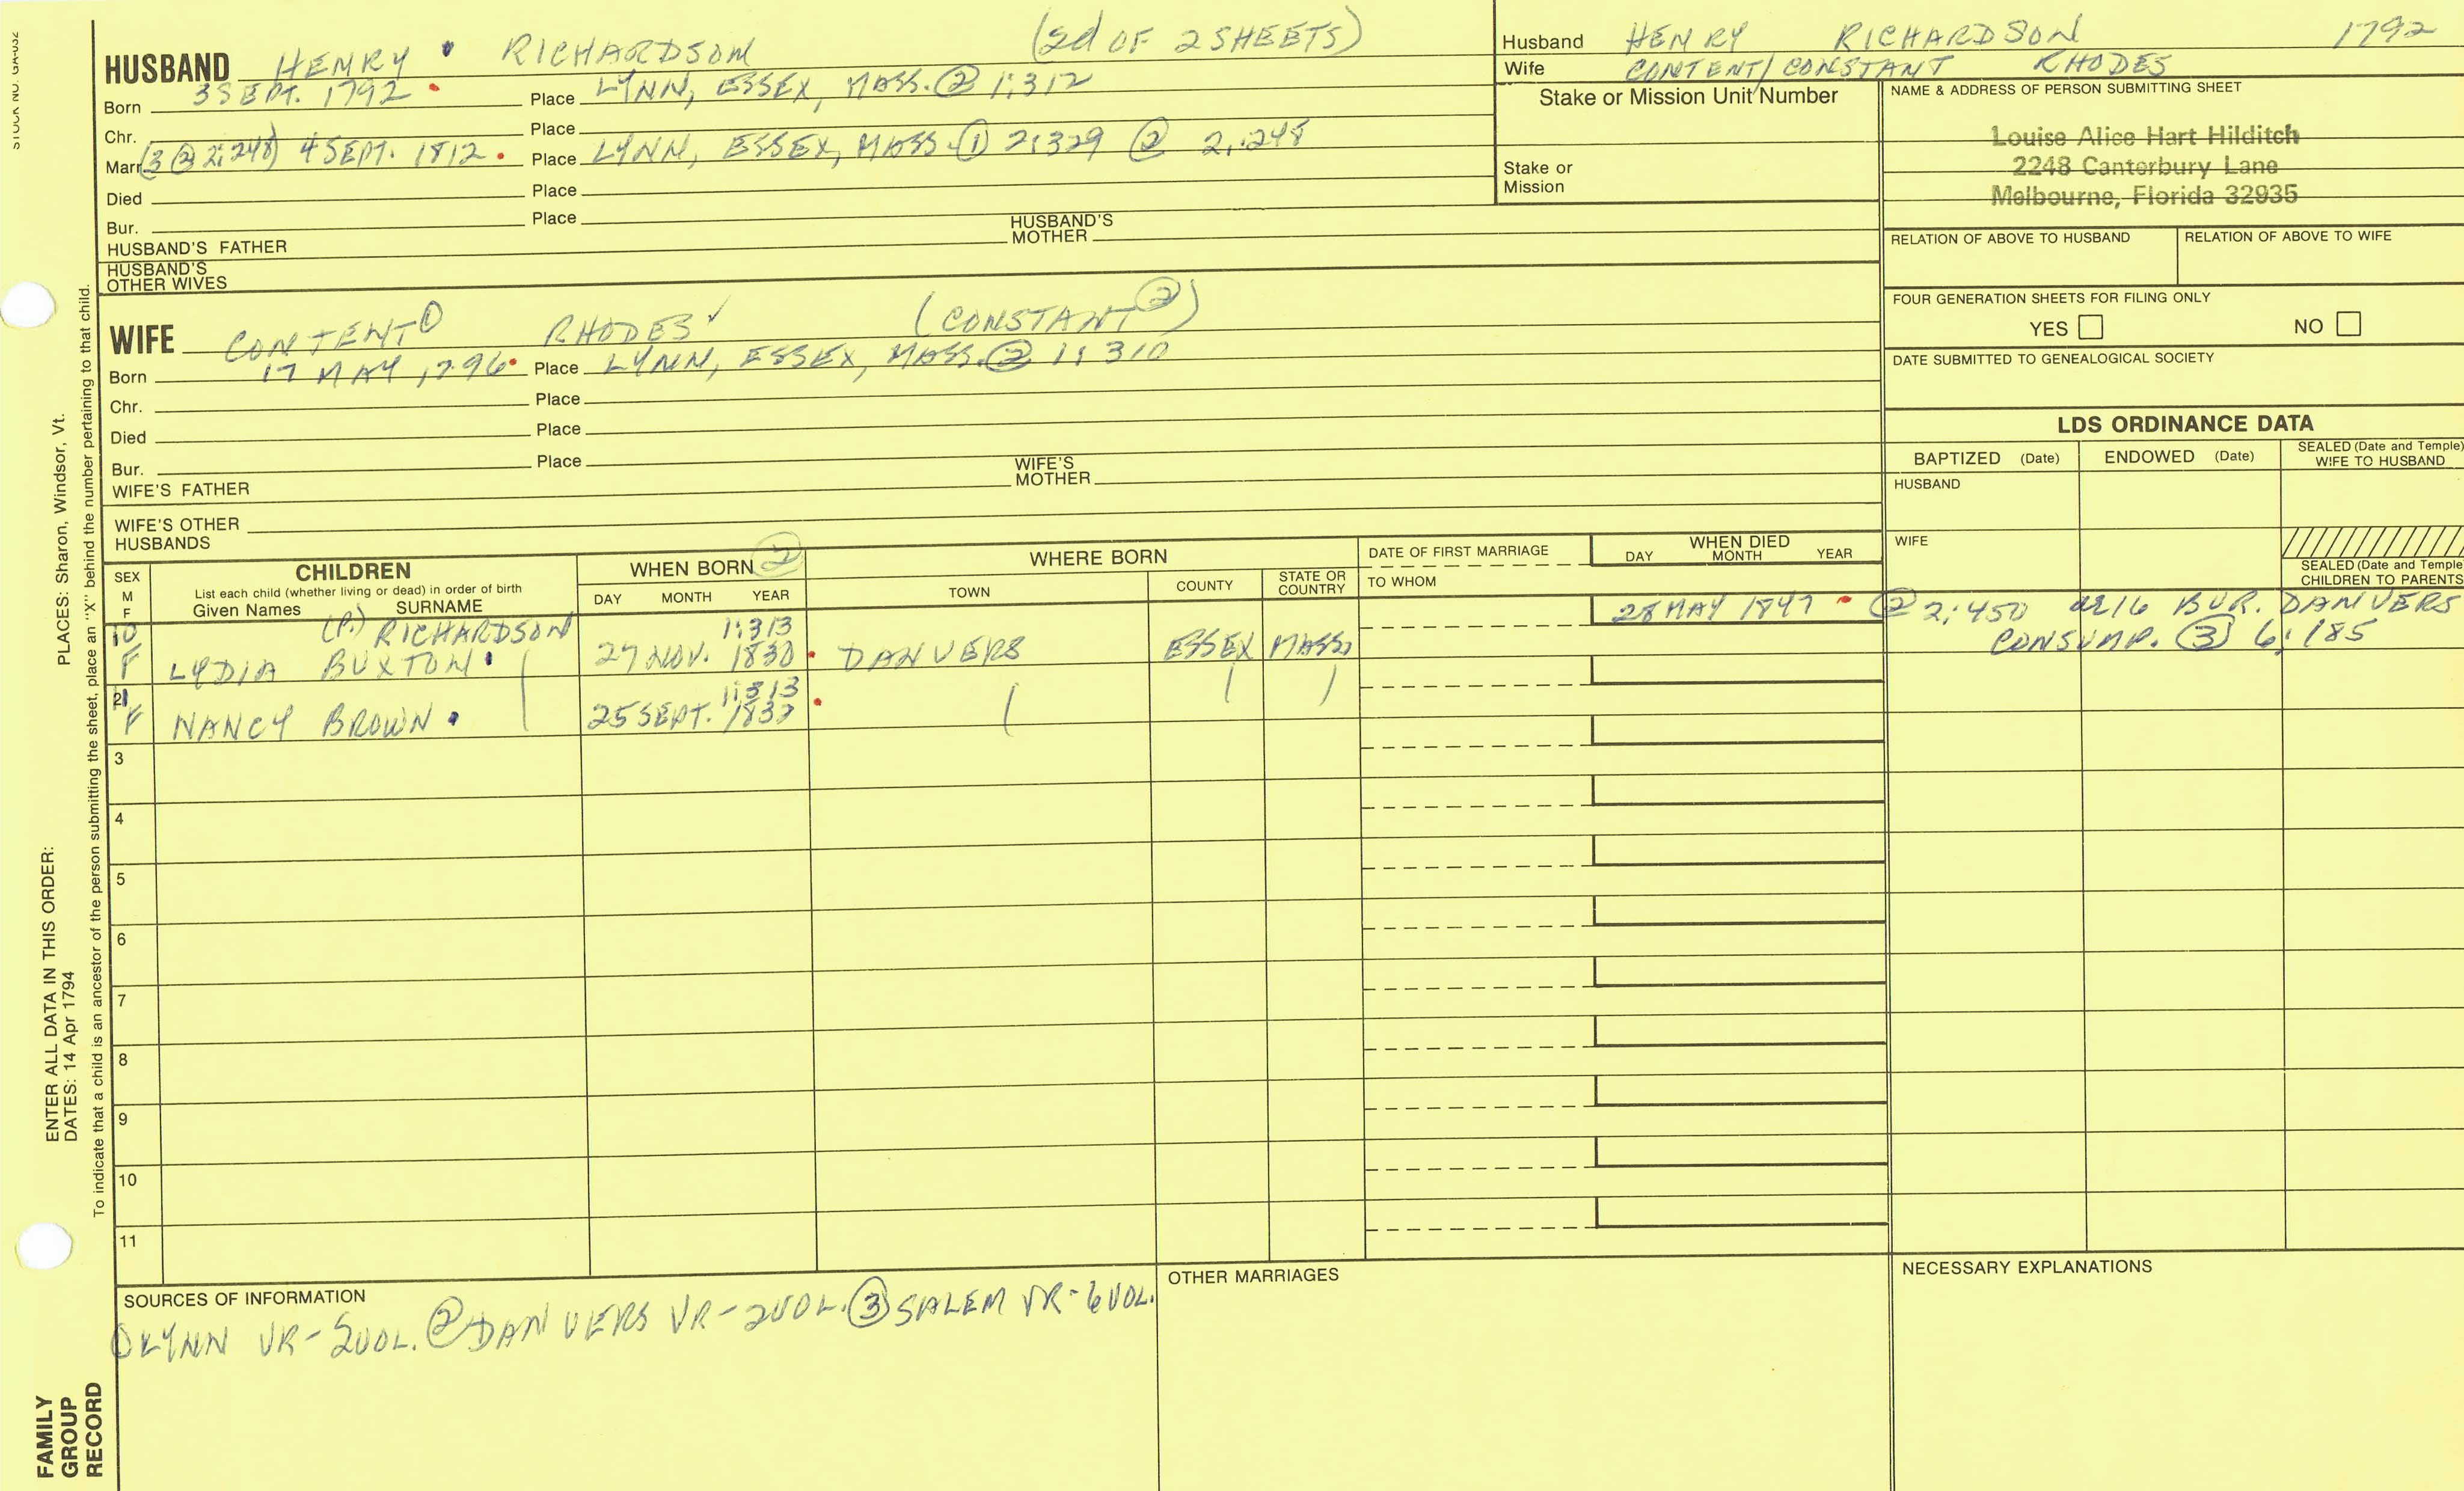 STOCK NO. GA-032
HUSBAND HENRY RICHARDSON (2d OF 2 SHEETS)
Born 3 SEPT. 1792 Place LYNN, ESSEX, MASS. ② 1:312
Chr. Place
Marr. (3 ② 2:248) 4 SEPT. 1812 Place LYNN, ESSEX, MASS. ① 2:329 ② 2:248
Died Place
Bur. Place
HUSBAND'S FATHER HUSBAND'S MOTHER
HUSBAND'S OTHER WIVES
WIFE CONTENT① RHODES ✓ (CONSTANT②)
Born 17 MAY 1796 Place LYNN, ESSEX, MASS. ② 1:310
Chr. Place
Died Place
Bur. Place
WIFE'S FATHER WIFE'S MOTHER
WIFE'S OTHER HUSBANDS
Husband HENRY RICHARDSON 1792
Wife CONTENT/CONSTANT RHODES
Stake or Mission Unit Number
Stake or Mission
NAME & ADDRESS OF PERSON SUBMITTING SHEET
Louise Alice Hart Hilditch
2248 Canterbury Lane
Melbourne, Florida 32935
RELATION OF ABOVE TO HUSBAND RELATION OF ABOVE TO WIFE
FOUR GENERATION SHEETS FOR FILING ONLY
YES NO
DATE SUBMITTED TO GENEALOGICAL SOCIETY
LDS ORDINANCE DATA
BAPTIZED (Date) ENDOWED (Date) SEALED (Date and Temple) WIFE TO HUSBAND
HUSBAND
WIFE
SEALED (Date and Temple
CHILDREN TO PARENTS
SEX M F
CHILDREN
List each child (whether living or dead) in order of birth
Given Names SURNAME
WHEN BORN ②
DAY MONTH YEAR
WHERE BORN
TOWN COUNTY STATE OR COUNTRY
DATE OF FIRST MARRIAGE
TO WHOM
WHEN DIED
DAY MONTH YEAR
10 (P.) RICHARDSON 1:313 28 MAY 1847 ② 2:450 æ16 BUR. DANVERS
F LYDIA BUXTON 27 NOV. 1830 DANVERS ESSEX MASS. CONSUMP. ③ 6:185
11 1:313
F NANCY BROWN 25 SEPT.
3
4
5
6
7
8
9
10
11
SOURCES OF INFORMATION
① LYNN VR-2VOL. ② DANVERS VR-2VOL. ③ SALEM VR-6VOL.
OTHER MARRIAGES
NECESSARY EXPLANATIONS
PLACES: Sharon, Windsor, Vt.
ENTER ALL DATA IN THIS ORDER:
DATES: 14 Apr 1794
To indicate that a child is an ancestor of the person submitting the sheet, place an "X" behind the number pertaining to that child.
FAMILY
GROUP
RECORD